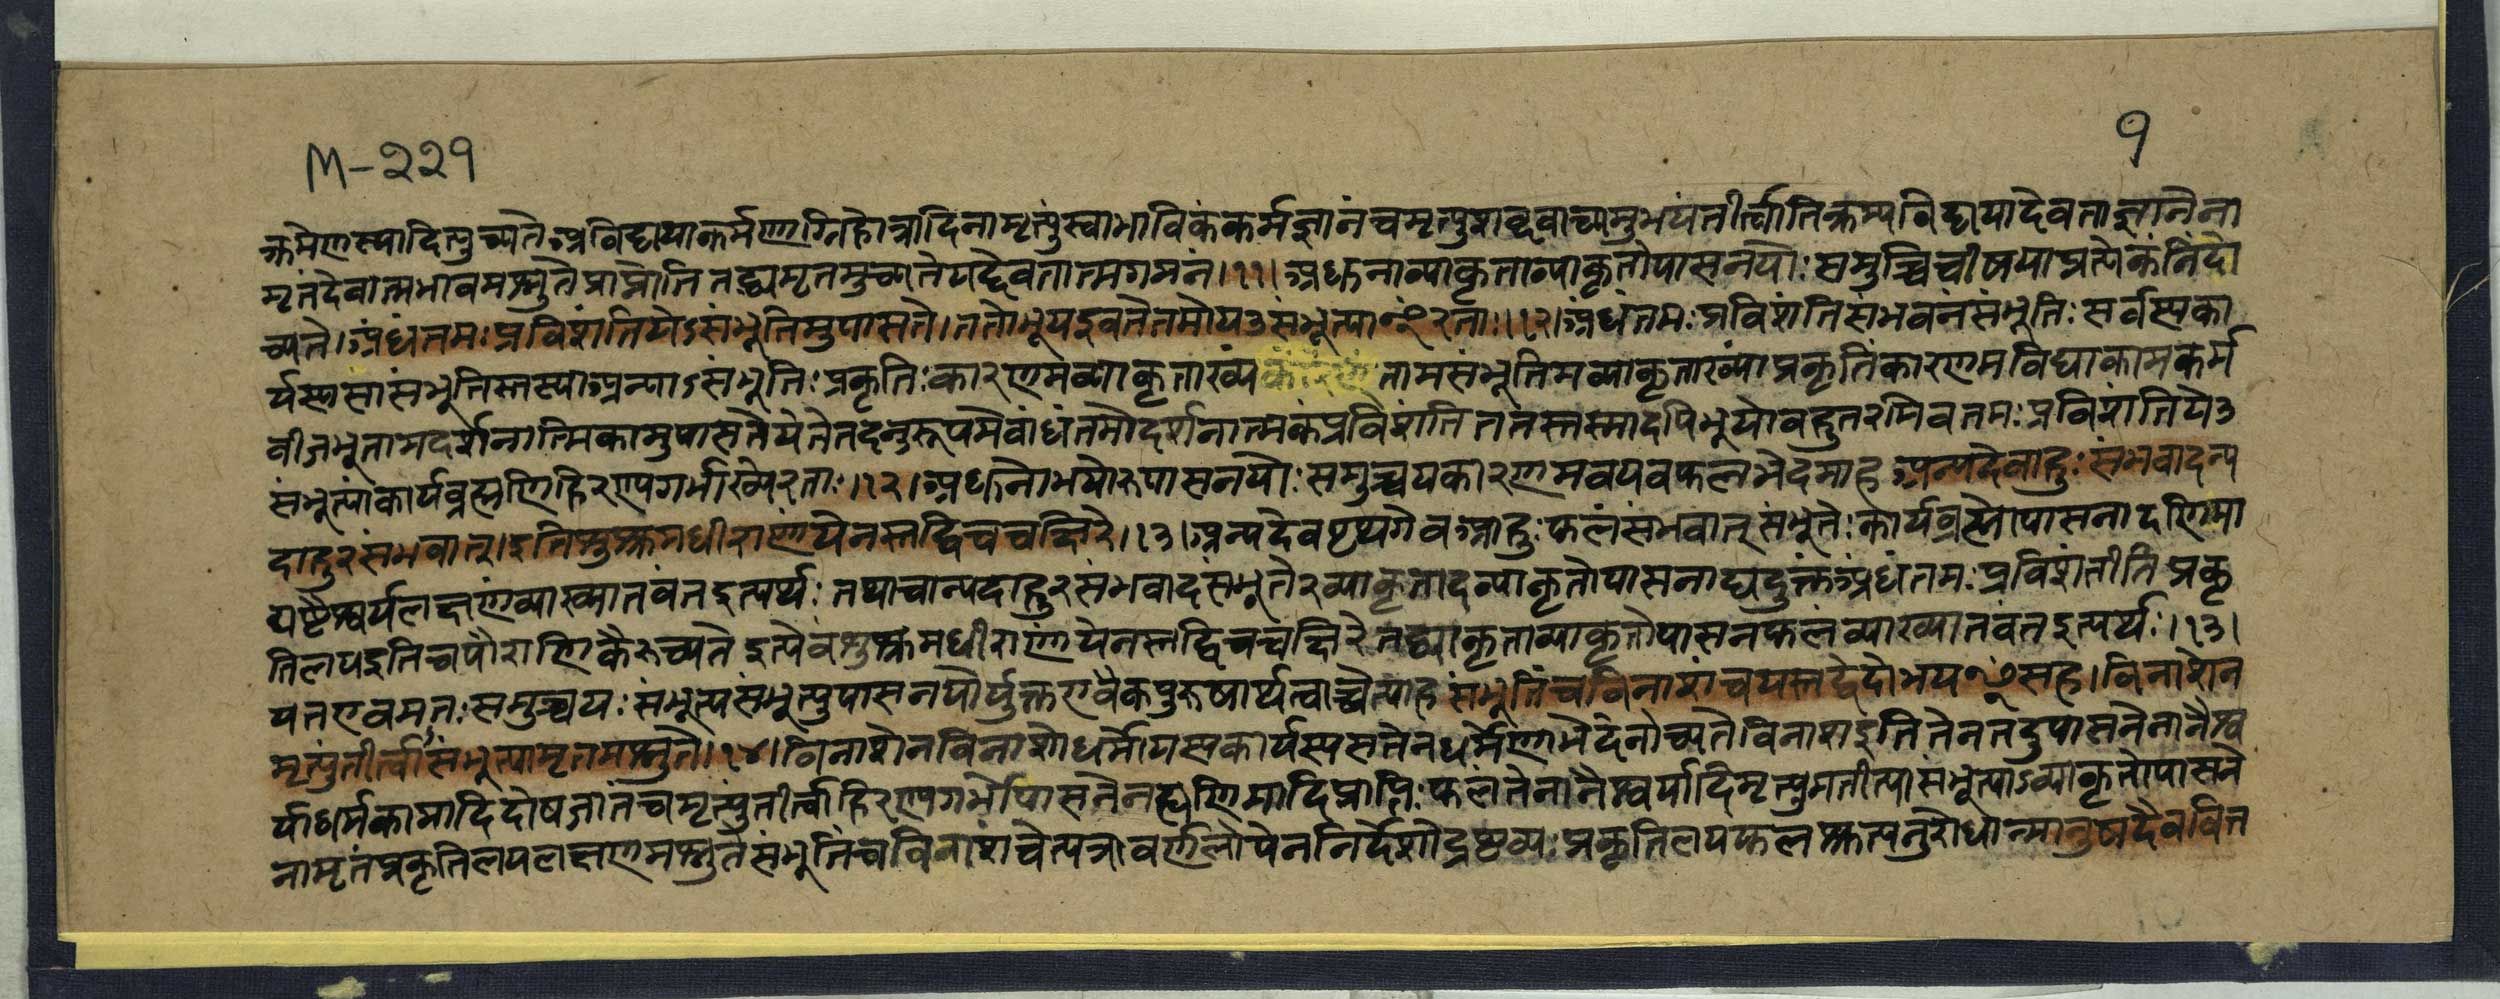 M-२२१
१
क्रमेणस्यादित्युच्यतेअविद्ययाकर्मणाग्निहोत्रादिनामृत्युंस्वाभाविकंकर्मज्ञानंचमृत्युशब्दवाच्यमुभयंतीर्त्वातिक्रम्यविद्ययादेवताज्ञानेना
मृतंदेवात्मभावमश्नुतेप्राप्नोतितद्ध्यमृतमुच्यतेयद्देवतात्मगमनं।११।अधुनाव्याकृताव्याकृतोपासनयोःसमुच्चिचीषयाप्रत्येकंनिंदो
च्यते।अंधंतमःप्रविशंतियेऽसंभूतिमुपासते।ततोभूयइवतेतमोयउसंभूत्याꣳरताः।१२।अंधंतमःप्रविशंतिसंभवनंसंभूतिःसर्वस्यका
र्यस्यसासंभूतिस्तस्याअन्याऽसंभूतिःप्रकृतिःकारणमव्याकृताख्यंतामसंभूतिमव्याकृताख्यांप्रकृतिंकारणमविद्याकामकर्म
बीजभूतामदर्शनात्मिकामुपासतेयेतेतदनुरूपमेवांधंतमोदर्शनात्मकंप्रविशंतिततस्तस्मादपिभूयोबहुतरमिवतमःप्रविशंतियेउ
संभूत्यांकार्यब्रह्मणिहिरण्यगर्भाख्येरताः।१२।अधुनोभयोरुपासनयोःसमुच्चयकारणमवयवफलभेदमाहअन्यदेवाहुःसंभवादन्य
दाहुरसंभवात्।इतिशुश्रुमधीराणांयेनस्तद्विचचक्षिरे।१३।अन्यदेवपृथगेवआहुःफलंसंभवात्संभूतेःकार्यब्रह्मोपासनादणिमा
द्यष्टैश्वर्यलक्षणंव्याख्यातवंतइत्यर्थःतथाचान्यदाहुरसंभवादसंभूतेरव्याकृतादव्याकृतोपासनाद्यदुक्तंअंधंतमःप्रविशंतीतिप्रकृ
तिलयइतिचपौराणिकैरुच्यतेइत्येवंशुश्रुमधीराणांयेनस्तद्विचचक्षिरेतद्व्याकृताव्याकृतोपासनफलंव्याख्यातवंतइत्यर्थः।१३।
यतएवमतःसमुच्चयःसंभूत्यसंभूत्युपासनयोर्युक्तएवैकपुरुषार्थत्वाच्चेत्याहसंभूतिंचविनाशंचयस्तद्वेदोभयꣳसह।विनाशेन
मृत्युंतीर्त्वासंभूत्यामृतमश्नुते।१४।विनाशेनविनाशोधर्मोयस्यकार्यस्यसतेनधर्मिणाभेदेनोच्यतेविनाशइतितेनतदुपासनेनानैश्व
र्याधर्मकामादिदोषजातंचमृत्युंतीर्त्वाहिरण्यगर्भोपासनेनह्यणिमादिप्राप्तिःफलंतेनानैश्वर्यादिमृत्युमतीत्यासंभूत्याऽव्याकृतोपासने
नामृतंप्रकृतिलयलक्षणमश्नुतेसंभूतिंचविनाशंचेत्यत्रावर्णलोपेननिर्देशोद्रष्टव्यःप्रकृतिलयफलश्रुत्यनुरोधान्मानुषदैववित्त